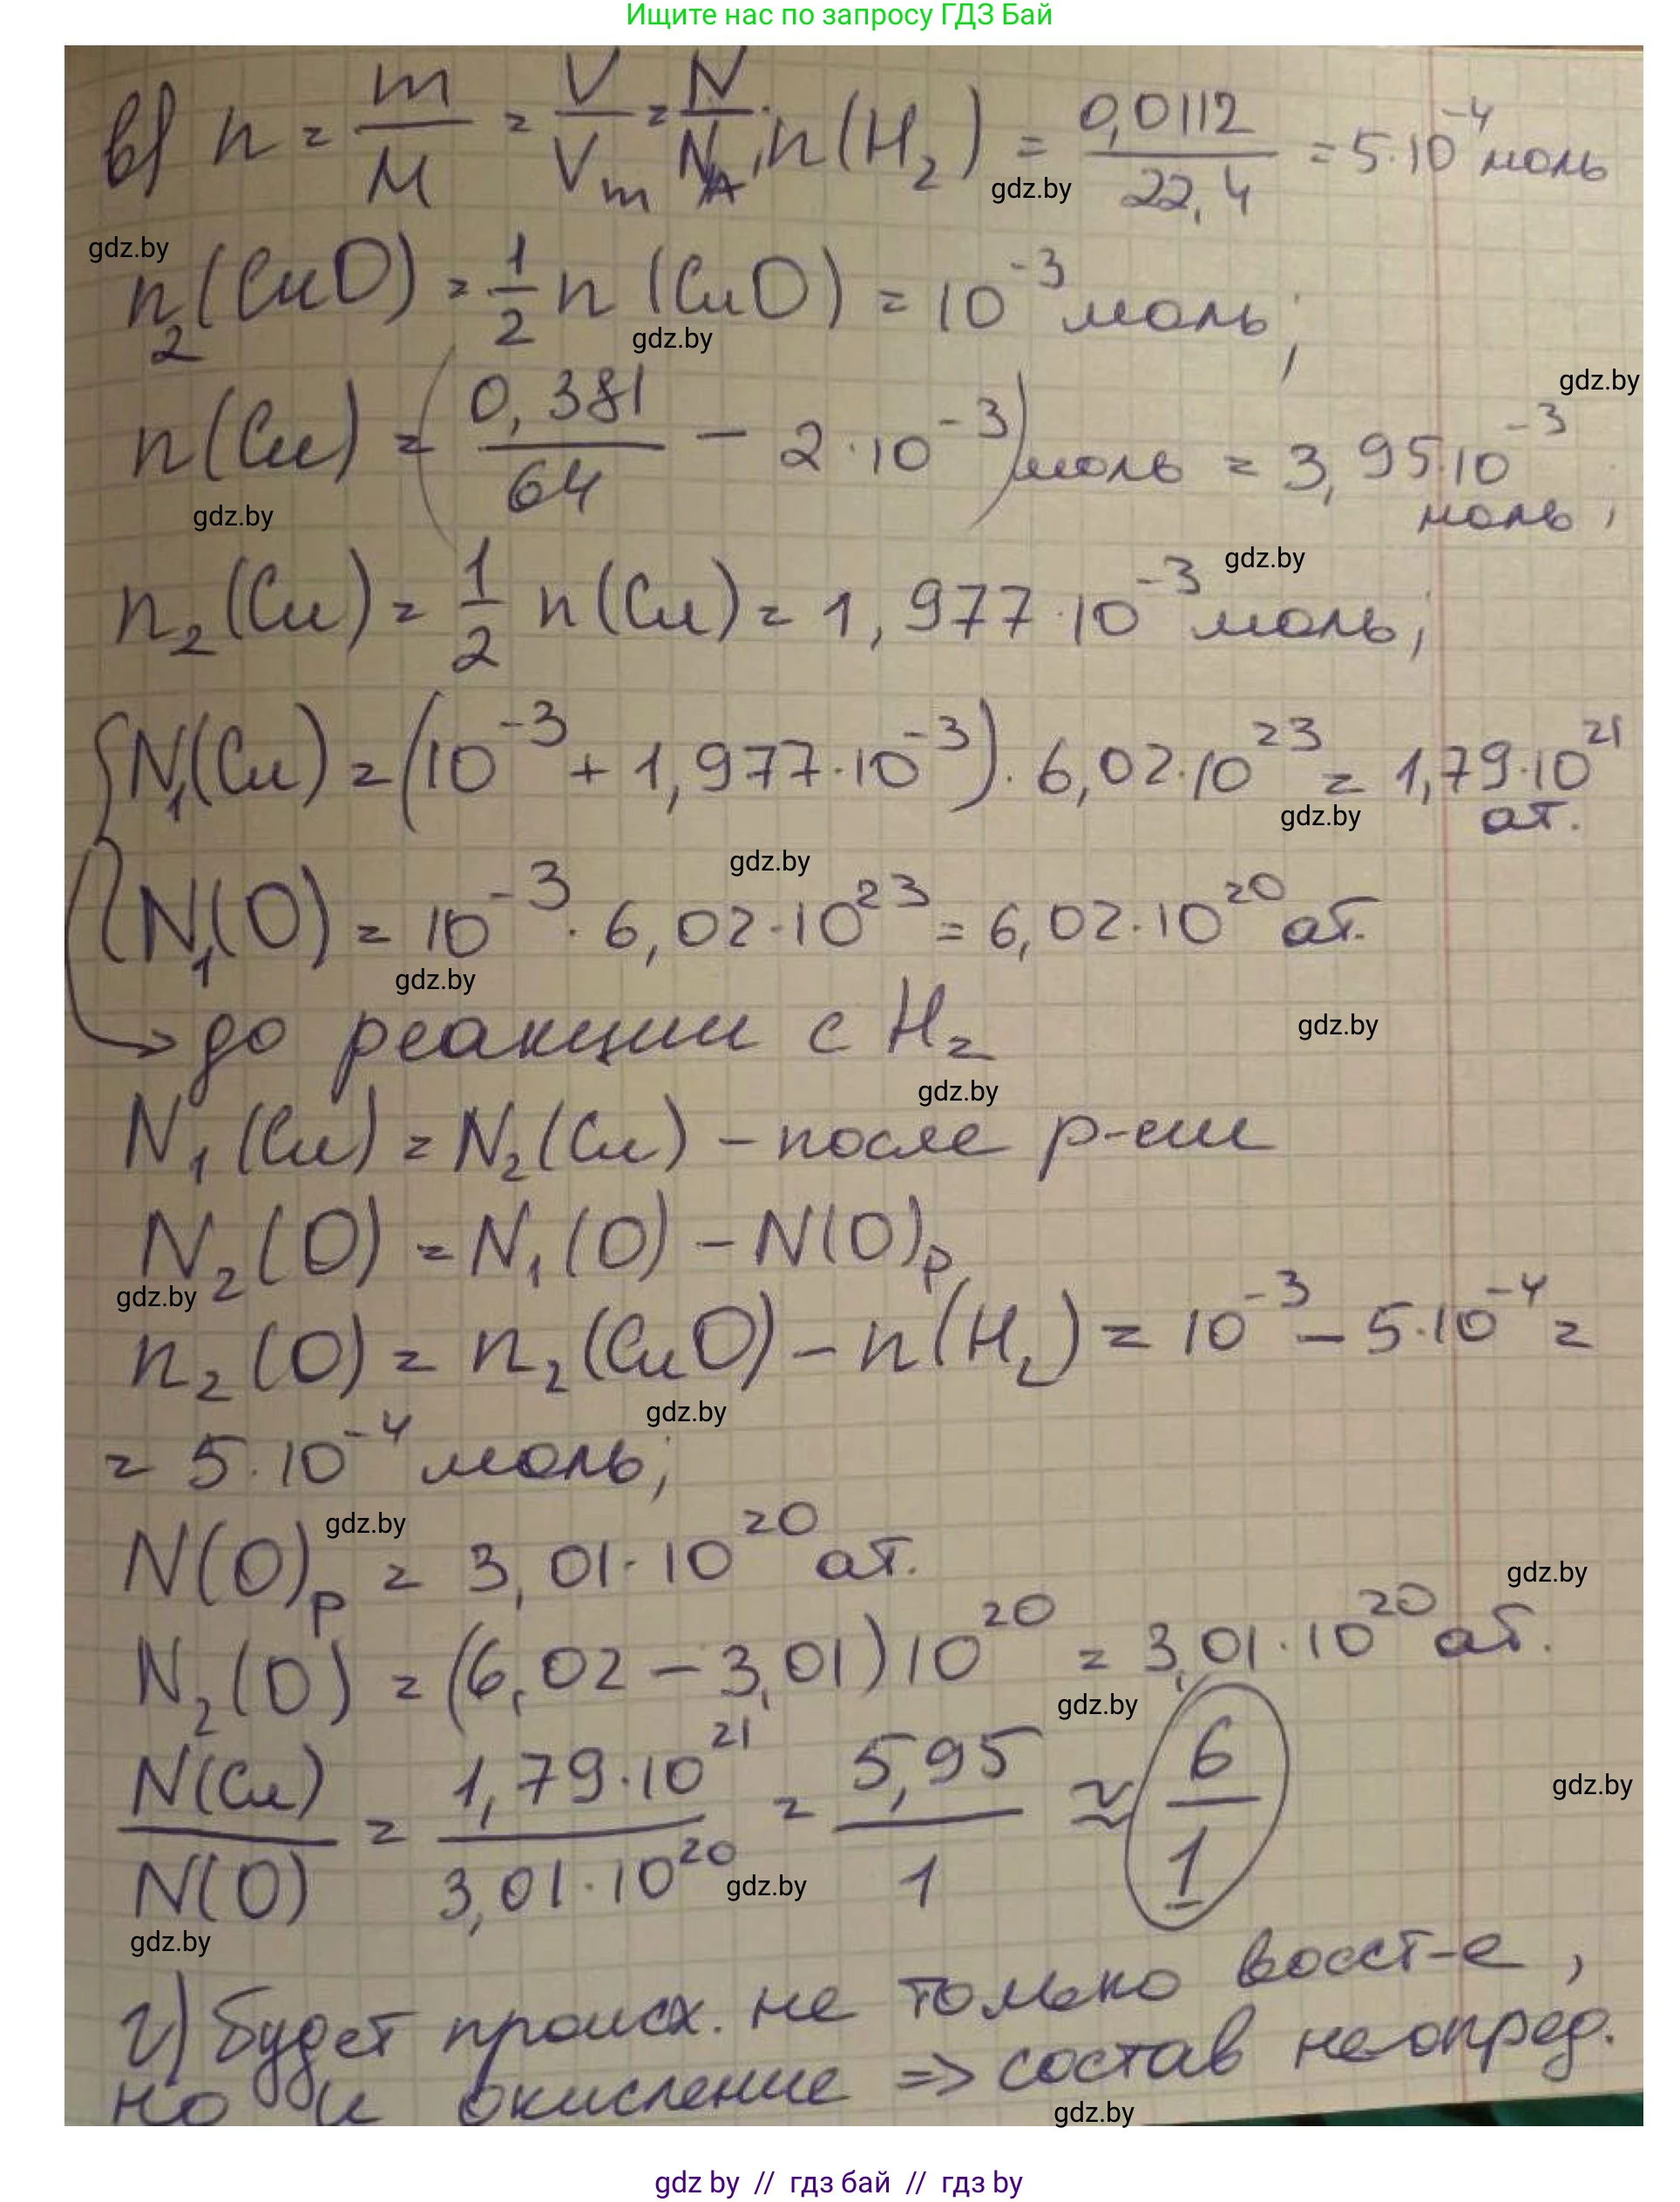 Ищите нас по запросу ГДЗ Бай
в) n = m/M = V/Vm = N/NA; n(H₂) = 0,0112/22,4 = 5·10⁻⁴ моль
gdz.by
gdz.by
n₂(CuO) = 1/2 n(CuO) = 10⁻³ моль;
gdz.by
gdz.by
n(Cu) = (0,381/64 − 2·10⁻³) моль = 3,95·10⁻³
моль;
gdz.by
gdz.by
n₂(Cu) = 1/2 n(Cu) = 1,977·10⁻³ моль;
N₁(Cu) = (10⁻³ + 1,977·10⁻³)·6,02·10²³ = 1,79·10²¹
ат.
gdz.by
gdz.by
N₁(O) = 10⁻³·6,02·10²³ = 6,02·10²⁰ ат.
gdz.by
→ до реакции с H₂
gdz.by
gdz.by
N₁(Cu) = N₂(Cu) – после р-ии
N₂(O) = N₁(O) − N(O)р
gdz.by
n₂(O) = n₂(CuO) − n(H₂) = 10⁻³ − 5·10⁻⁴ =
gdz.by
= 5·10⁻⁴ моль;
gdz.by
N(O)р = 3,01·10²⁰ ат.
gdz.by
N₂(O) = (6,02 − 3,01)10²⁰ = 3,01·10²⁰ ат.
gdz.by
N(Cu)/N(O) = 1,79·10²¹/3,01·10²⁰ = 5,95/1 ≈ 6/1
gdz.by
gdz.by
gdz.by
г) будет происх. не только восст-е,
но и окисление => состав неопред.
gdz.by
gdz by // гдз бай // гдз by